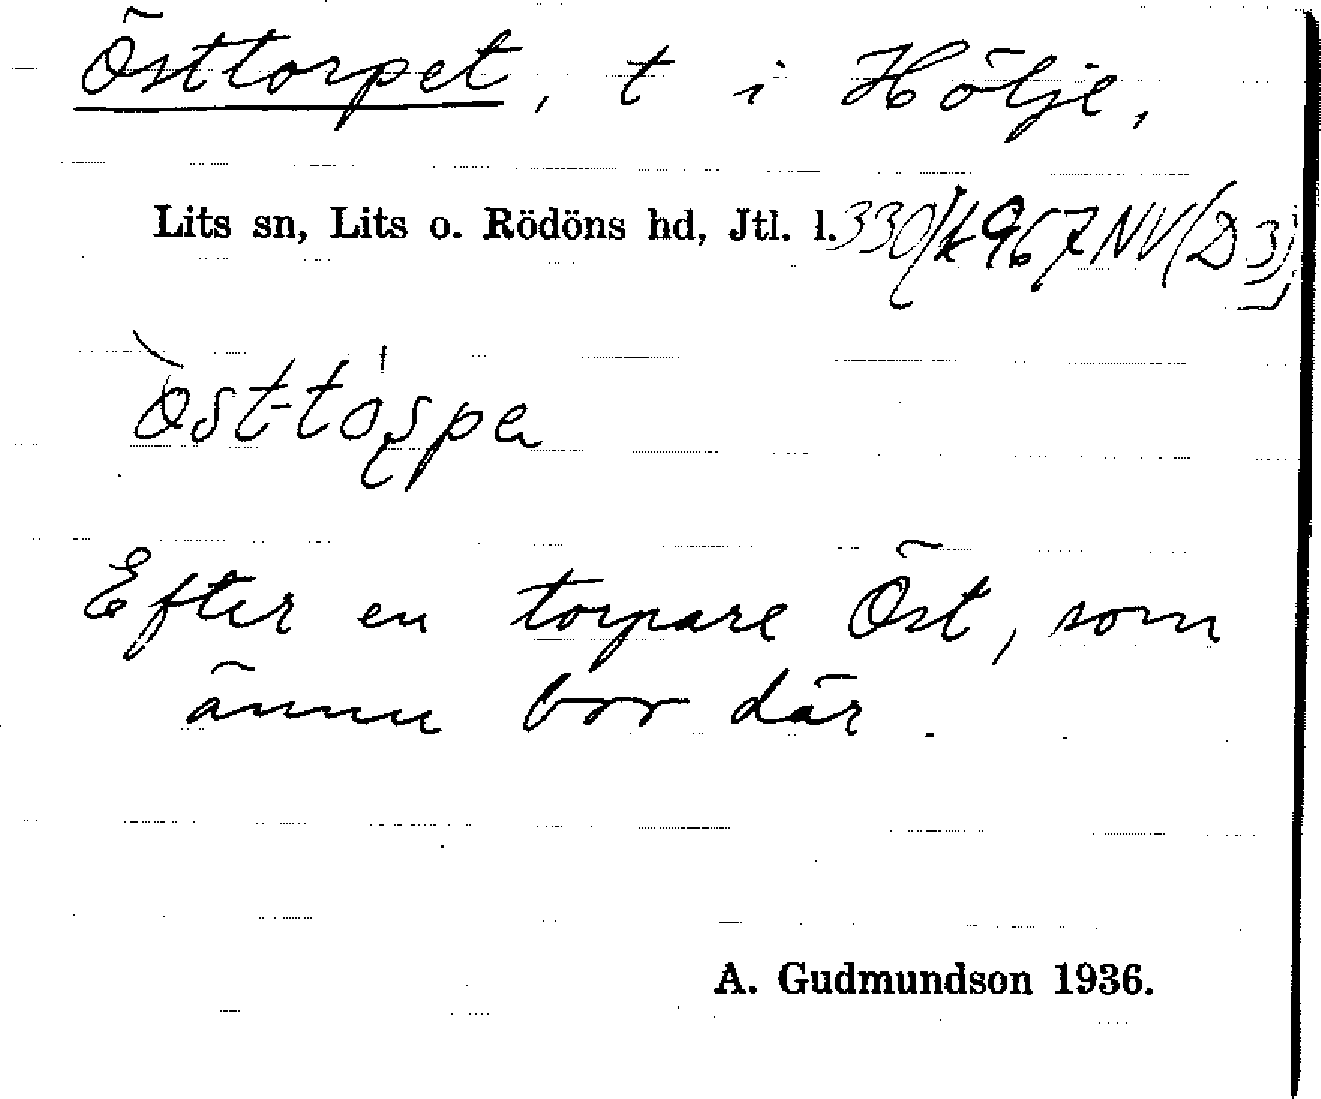 Östtorpet, t i Hölje,
Lits sn, Lits o. Rödöns hd, Jtl. l.
Efter en torpare Öst, som
ännu bor där.
A. Gudmundson 1936.